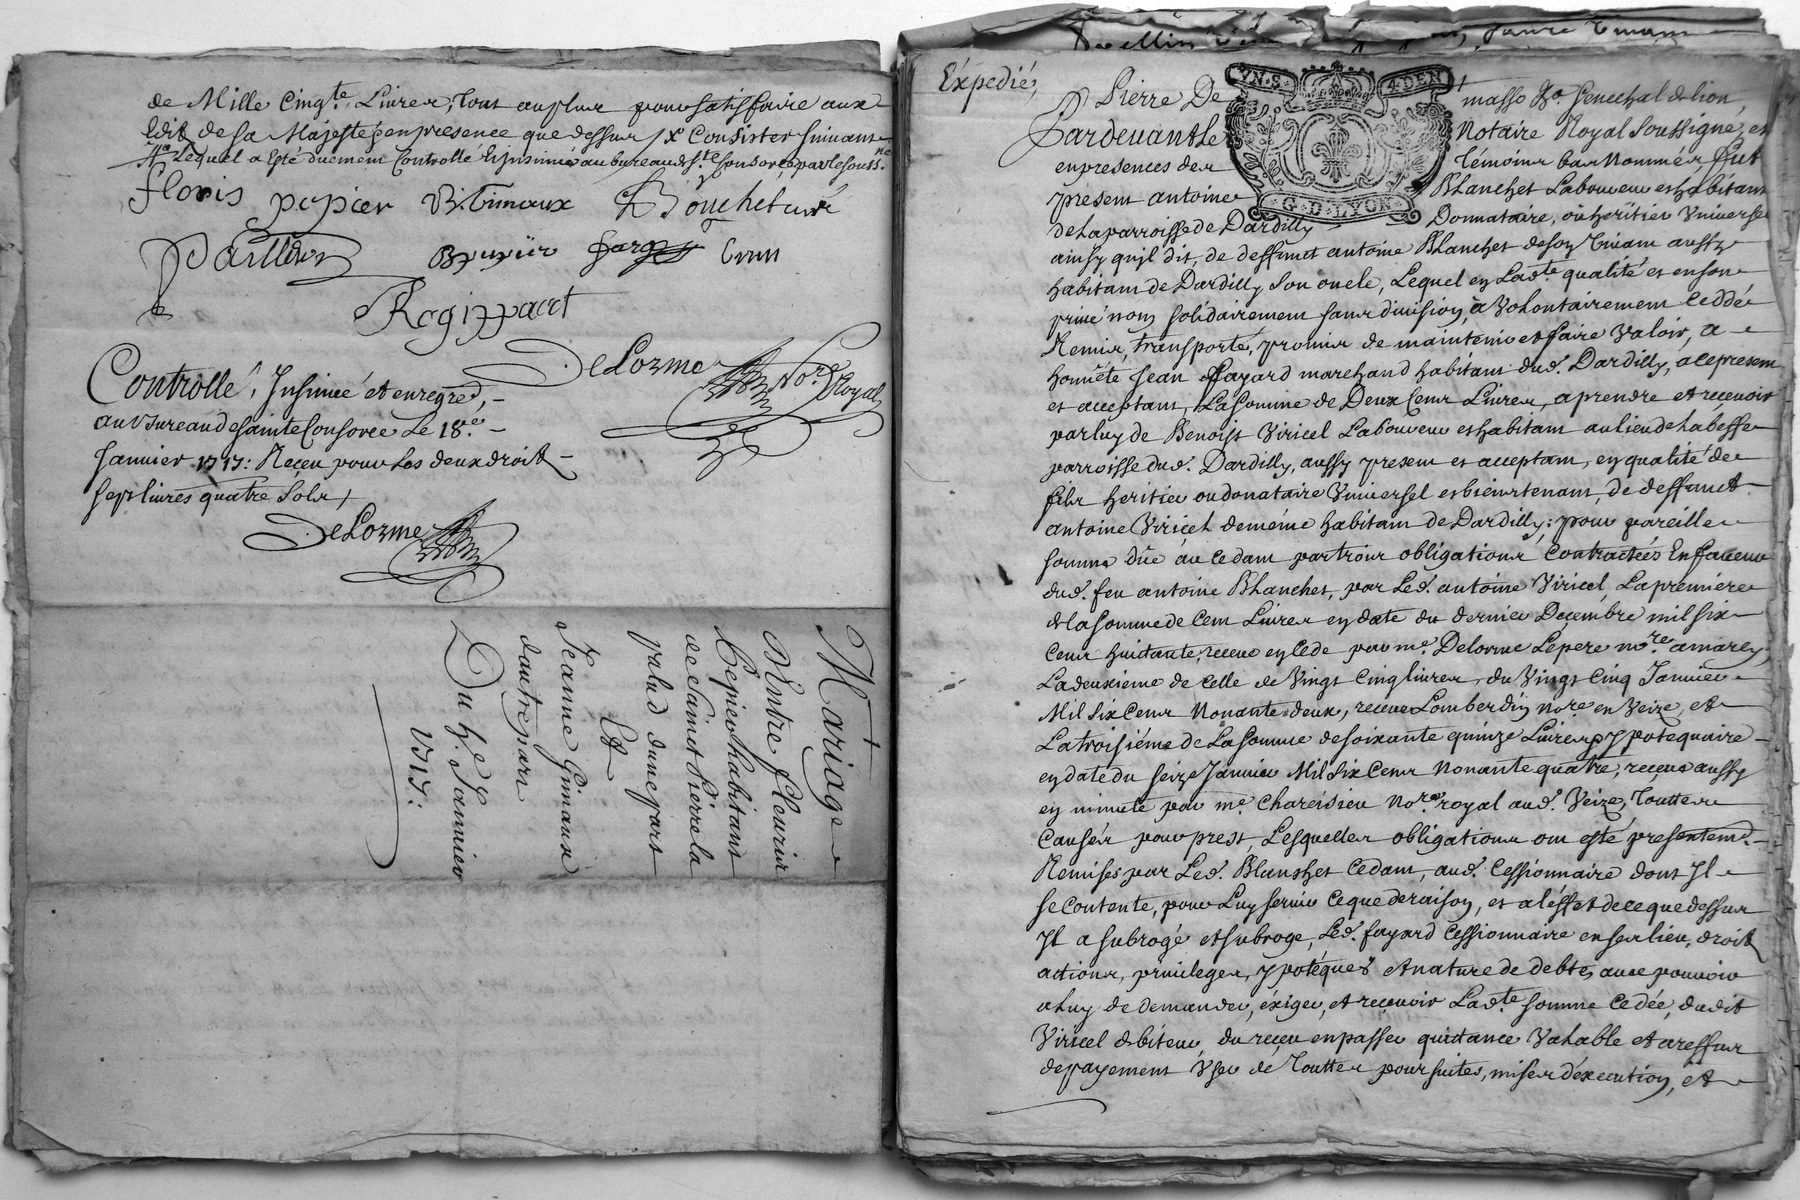 de Mille Cinq.te Livres, tout au plus pour satisffaire aux
Edit de sa Majesté en presence que dessus
Lequel a esté duement Controllé Et Insinué au bureau de S.te Consorce par le souss.né
floris pepier B: Grimaux Bouchet curé
paillasson Bruyeir
Regippaert
DeLorme No.re Royal
Controllé, Insinué et enregred,
au Bureau de sainte Consorce Le 18.e
Janvier 1717: Receu pour Les deux droits
sept livres quatre sols
DeLorme
Mariage
D'Entre fleurir
Pepier habitant
de Sainct Pierre la
palud d'une part
Et
Jeanne Grimaux
d'autre part
Du h.e Janvier
1717:
Expedié,
VN.S. 4 DEN
G.D.LYON
Pierre De masso Sg.r Senechal de lion,
Pardevant Le Notaire Royal soussigné, et
en presences des témoins bas Nommés fut
present antoine Blanchet Laboureur et habitant
de la parroisse de Dardilly Donnataire, ou heritier Universel
ainsy qu'il dit, de deffunct antoine Blanchet de son vivant aussy
habitant de Dardilly son oncle, Lequel en Lad.te qualité et en son
privé nom solidairement sans division, a Volontairement Ceddé
Remis, transporté, promis de maintenir et faire Valoir, a
honnête Jean fayard marchand habitant dud. Dardilly, a ce present
et acceptant, La somme de Deux Cens Livres, a prendre et recevoir
par luy de Benoist Viricel Laboureur et habitant au lieu de La beffe
parroisse dud. Dardilly, aussy present et acceptant, en qualité de
fils heritier ou donataire Universel et bientenant, de deffunct
antoine Viricel de même habitant de Dardilly; pour pareille
somme düe au cedant par trois obligations Contractées En faveur
dud. feu antoine Blanchet, par Led. antoine Viricel, La premiere
de la somme de Cent Livres en date du dernier Decembre mil six
Cens huictante, receue en Cede par m.e Delorme Le pere no.re a marcy,
La deuxieme de Celle de Vingt Cinq livres, du Vingt Cinq Janvier
Mil Six Cens Nonante deux, receue Lomberdin no.re en Veize, Et
La troisiéme de La somme de soixante quinze Livres, ypotequaire
en date du seize Janvier Mil Six Cens Nonante quatre, receue aussy
en minute par m.e Chareisieu No.re royal aud. Veize, toutes
Causés pour prest, Lesquelles obligations ont esté presentem.t
Remises par Led. Blanchet Cedant, aud. Cessionnaire dont Il
se Contente, pour Luy servir ce que de raison, et a l'effet de ce que dessus
Il a subrogé et subroge, Led. fayard Cessionnaire en ses lieu, droits
actions, privileges, ypotéques et nature de debtes avec pouvoir
a Luy de demander, éxiger, et recevoir Lad.te somme Cedée, dudit
Viricel debiteur du receu en passer quittance Valable et a reffus
de payement User de Touttes poursuites, mises d'éxecution, Et